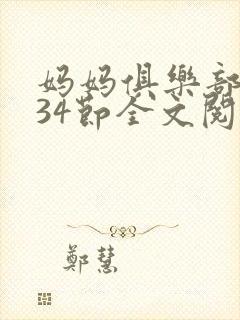 妈妈俱樂部
34节全文閱
鄭慧